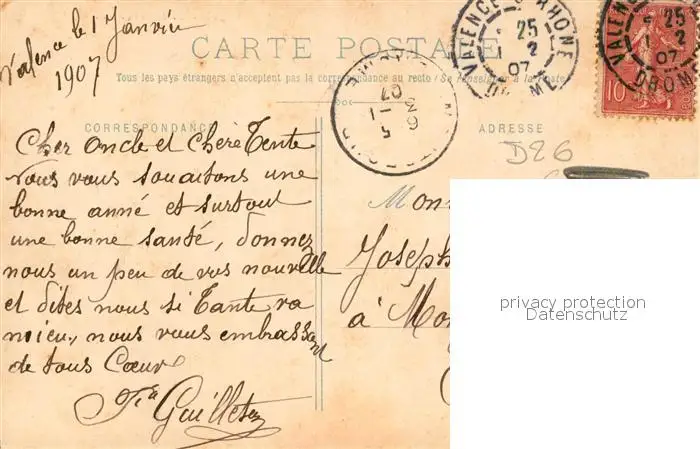 Valence le 1 Janvier
1907
CARTE POSTALE
Tous les pays étrangers n'acceptent pas la correspondance au recto (Se renseigner à la Poste)
CORRESPONDANCE
ADRESSE
D26
Cher Oncle et Chère Tente
Nous vous souaitons une
bonne anné et surtout
une bonne santé, donnez
nous un peu de vos nouvelle
et dites nous si Tante va
mieux, nous vous embrassent
de tous Cœur
Mon
Joseph
à Mon
VALENCE S RHONE
25
1 2
07
DROME
VALENCE
25
1 2
07
DROME
10
5
6 3
07
privacy protection
Datenschutz